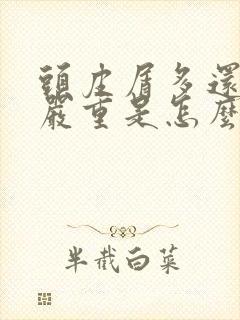 頭皮屑多還
嚴重是怎麼
半截白菜